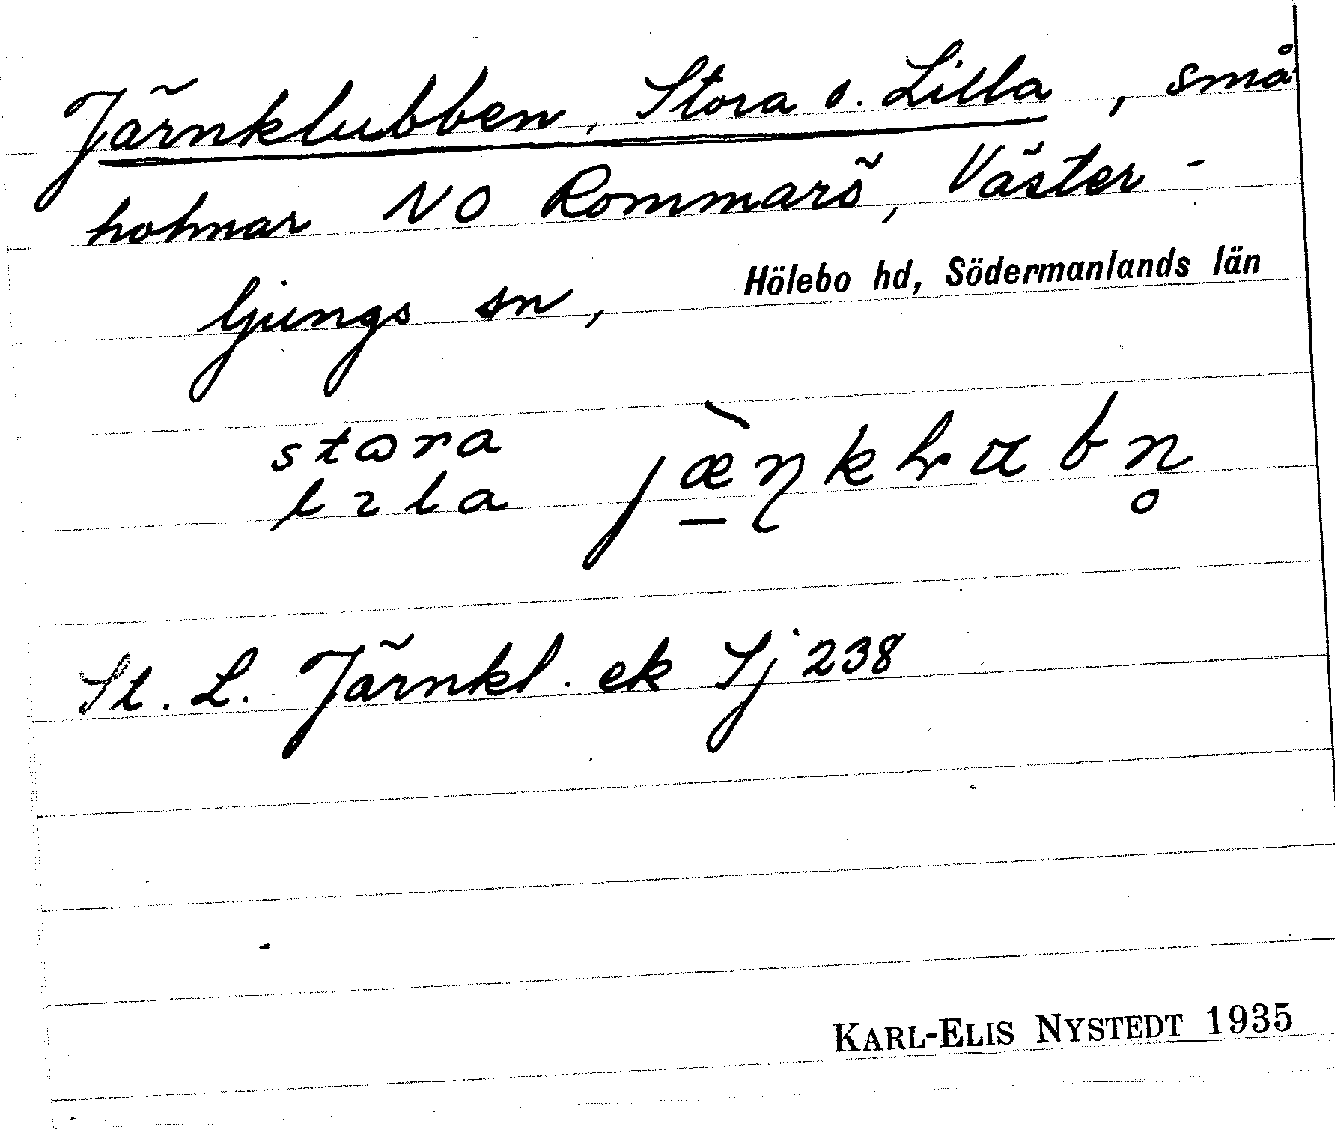 Järnklubben, Stora o. Lilla, små
holmar NO Rommarö, Väster-
ljungs sn, Hölebo hd, Södermanlands län
stora
lɩla
St. L. Järnkl. ek Sj 238
KARL-ELIS NYSTEDT 1935